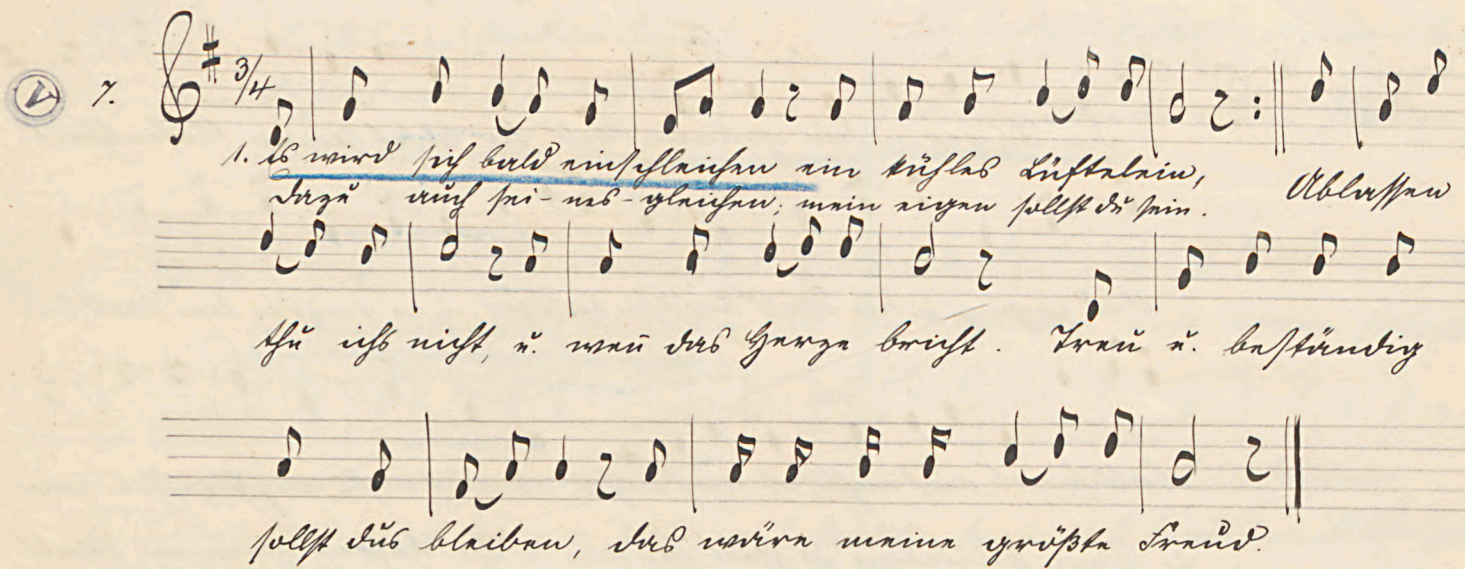 V 7. 3/4
1. Es wird sich bald einschleichen ein kühles Lüftelein,
Dazu auch sei-nes-gleichen; mein eigen sollst du sein. Ablassen
thu ichs nicht, u. wen̅ das Herze bricht. Treu u. beständig
sollst dus bleiben, das wäre meine größte Freud.